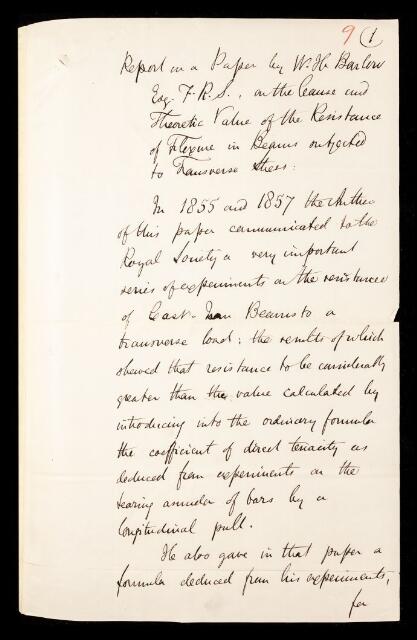 9 (1
Report on a Paper by W. H. Barlow
Esq. F.R.S., on the Cause and
Theoretic Value of the Resistance
of Flexure in Beams subjected
to Transverse Stress.
In 1855 and 1857 the Author
of this paper communicated to the
Royal Society a very important
series of experiments on the resistance
of Cast-Iron Beams to a
transverse load; the results of which
shewed that resistance to be considerably
greater than the value calculated by
introducing into the ordinary formula
the coefficient of direct tenacity as
deduced from experiments on the
tearing asunder of bars by a
longitudinal pull.
He also gave in that paper a
formula deduced from his experiments,
for